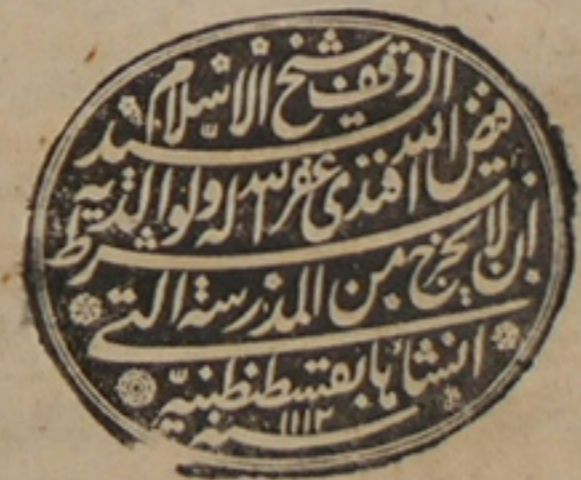 وقف شيخ الاسلام السيد
فيض الله افندى غفر الله له ولوالديه
بشرط ان لا يخرج من المدرسة التى
انشاها بقسطنطنيه
سنة ١١١٢